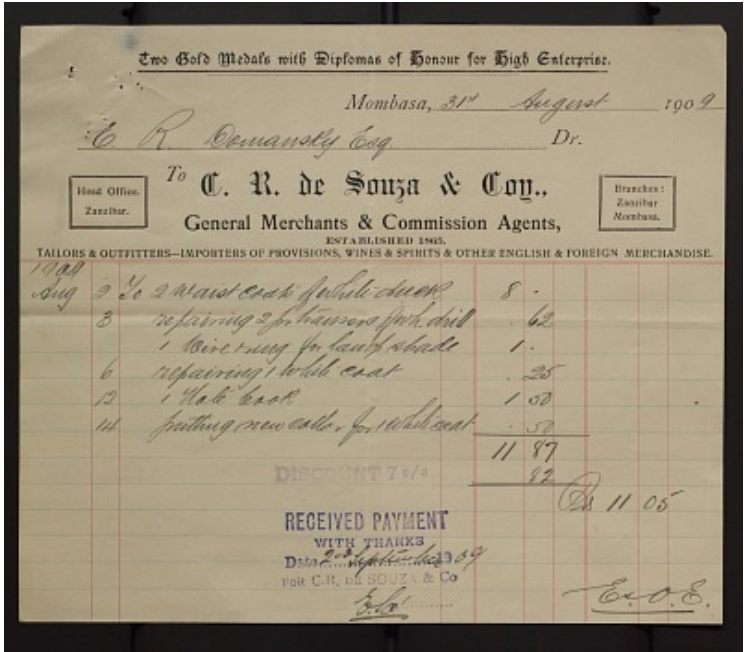 Two Gold Medals with Diplomas of Honour for High Enterprise.
Mombasa, 31st August 1909
E R Domansky Esq Dr.
To C. R. de Souza & Coy.,
Head Office. Zanzibar.
Branches: Zanzibar Mombasa.
General Merchants & Commission Agents,
ESTABLISHED 1865.
TAILORS & OUTFITTERS—IMPORTERS OF PROVISIONS, WINES & SPIRITS & OTHER ENGLISH & FOREIGN MERCHANDISE.
1909
Aug 2 To 2 waist coats of white duck 8 -
3 repairing 2 pr trausers of wh. drill . 62
1 Wire ring for lamp shade 1 .
6 repairing 1 white coat . 25
12 1 Note book 1 50
14 putting new collar for 1 white coat . 50
11 87
DISCOUNT 7 o/o 82
Rs 11 05
RECEIVED PAYMENT
WITH THANKS
Date 2nd September 1909
PER C.R. DE SOUZA & Co
E. & O. E.